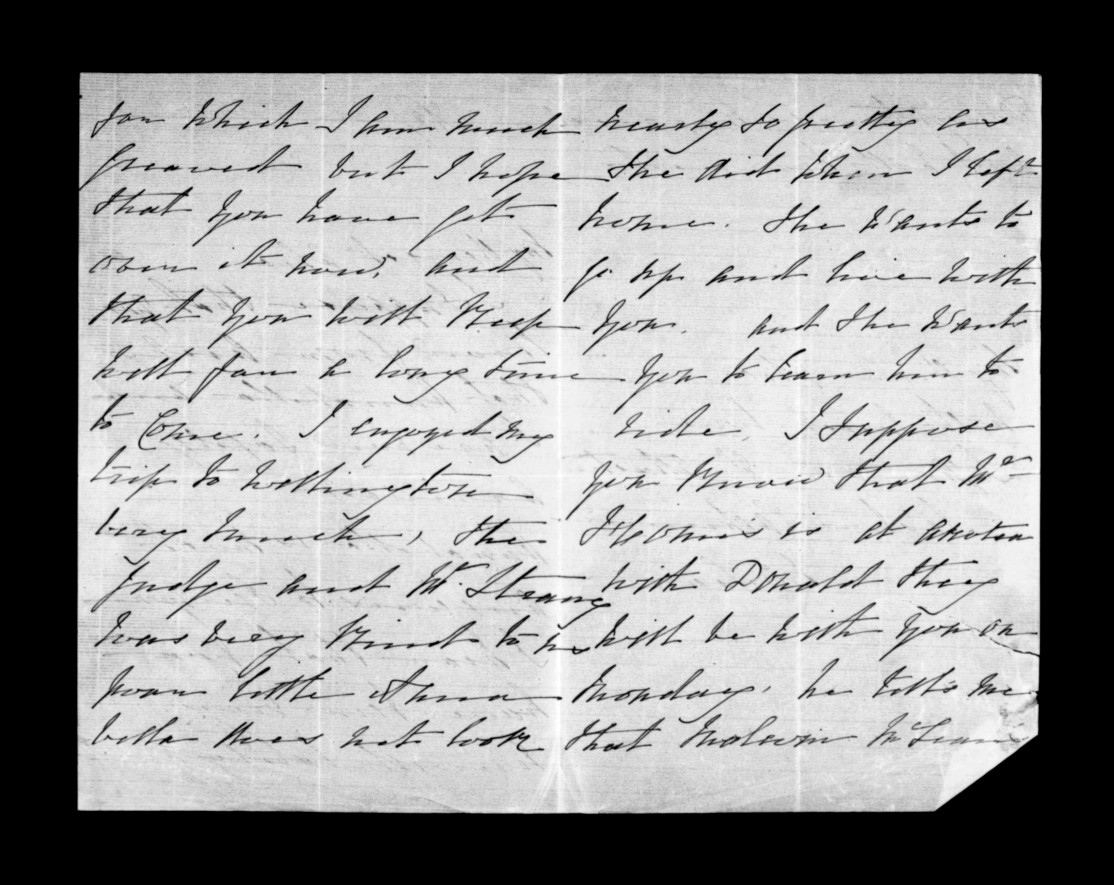 for which I am much
greaved but I hope
that you have got
over it now, and
that you will keep
well for a long time
to Come. I engoyed my
trip to Wellington
very much, the
Judge and Mr. Strang
was very kind to us
poar little Anna
bella does not look
nearly so pretty as
She did when I left
home. She wants to
go up and live with
you. and She wants
you to learn him to
ride, I Suppose
you know that Mr
is at
with Donald they
will be with you on
Monday. he tells me
that Malcom McLean